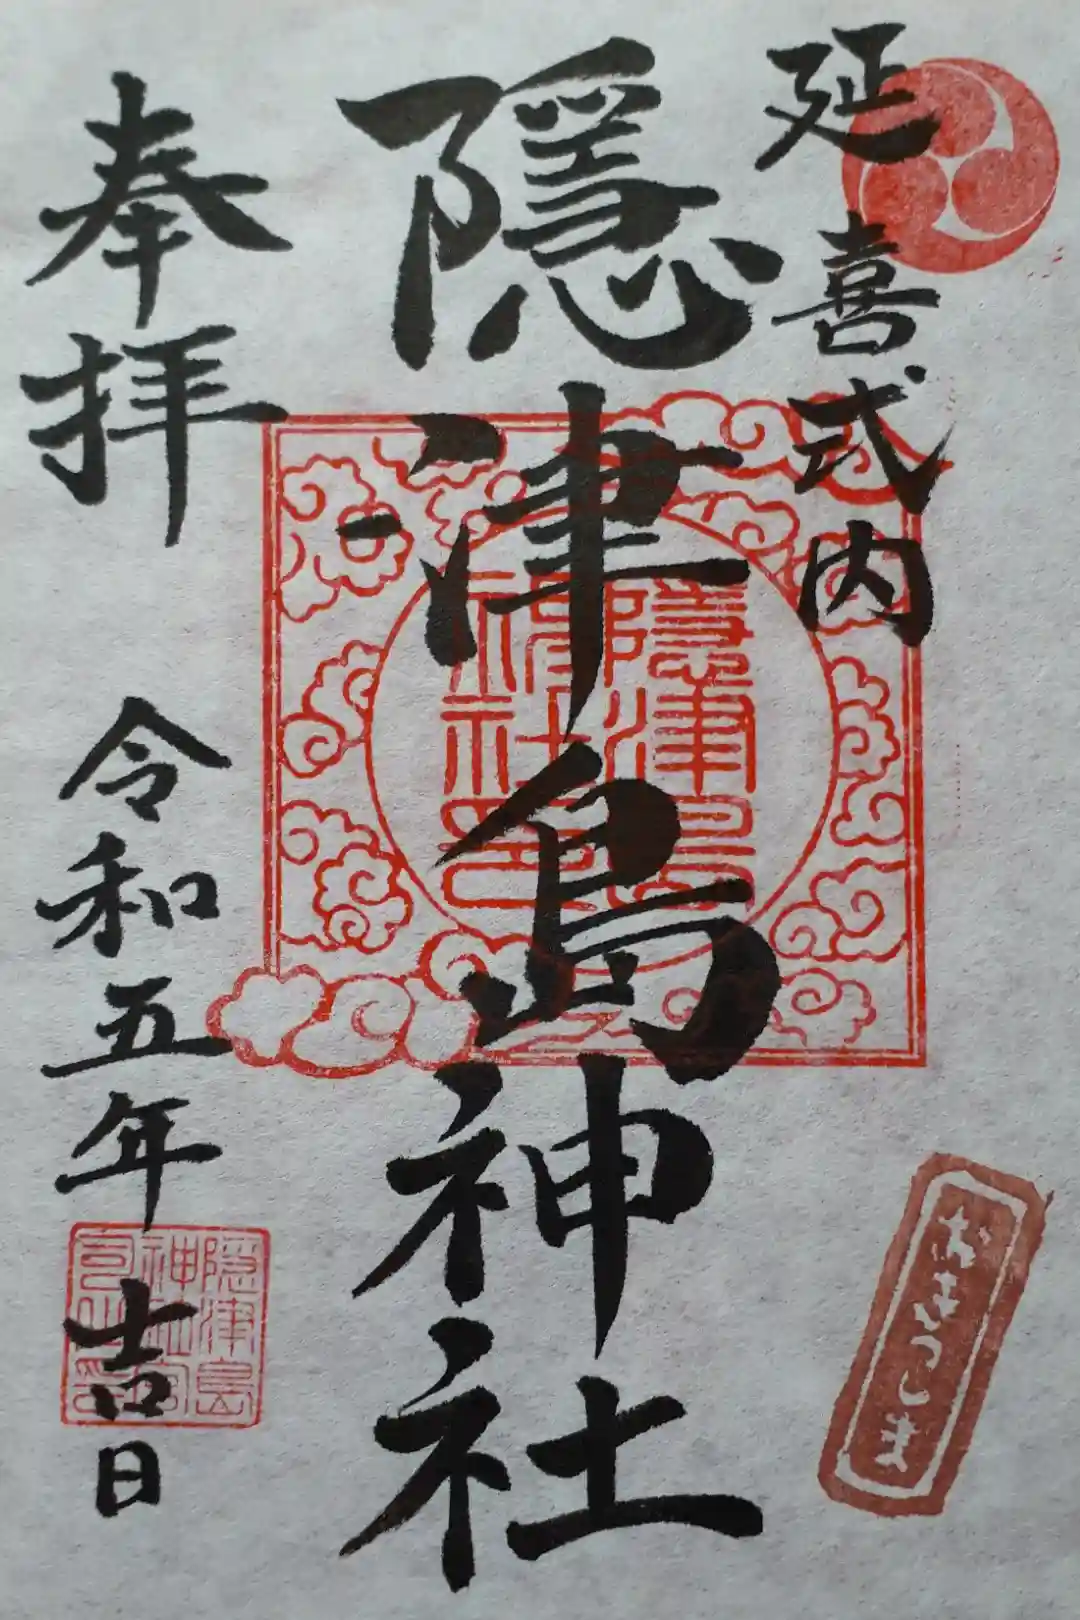 延喜式内
隠津島神社
奉拝
令和五年吉日
隠津島
神社印
おきつしま
隠津島
神社宮
司之印